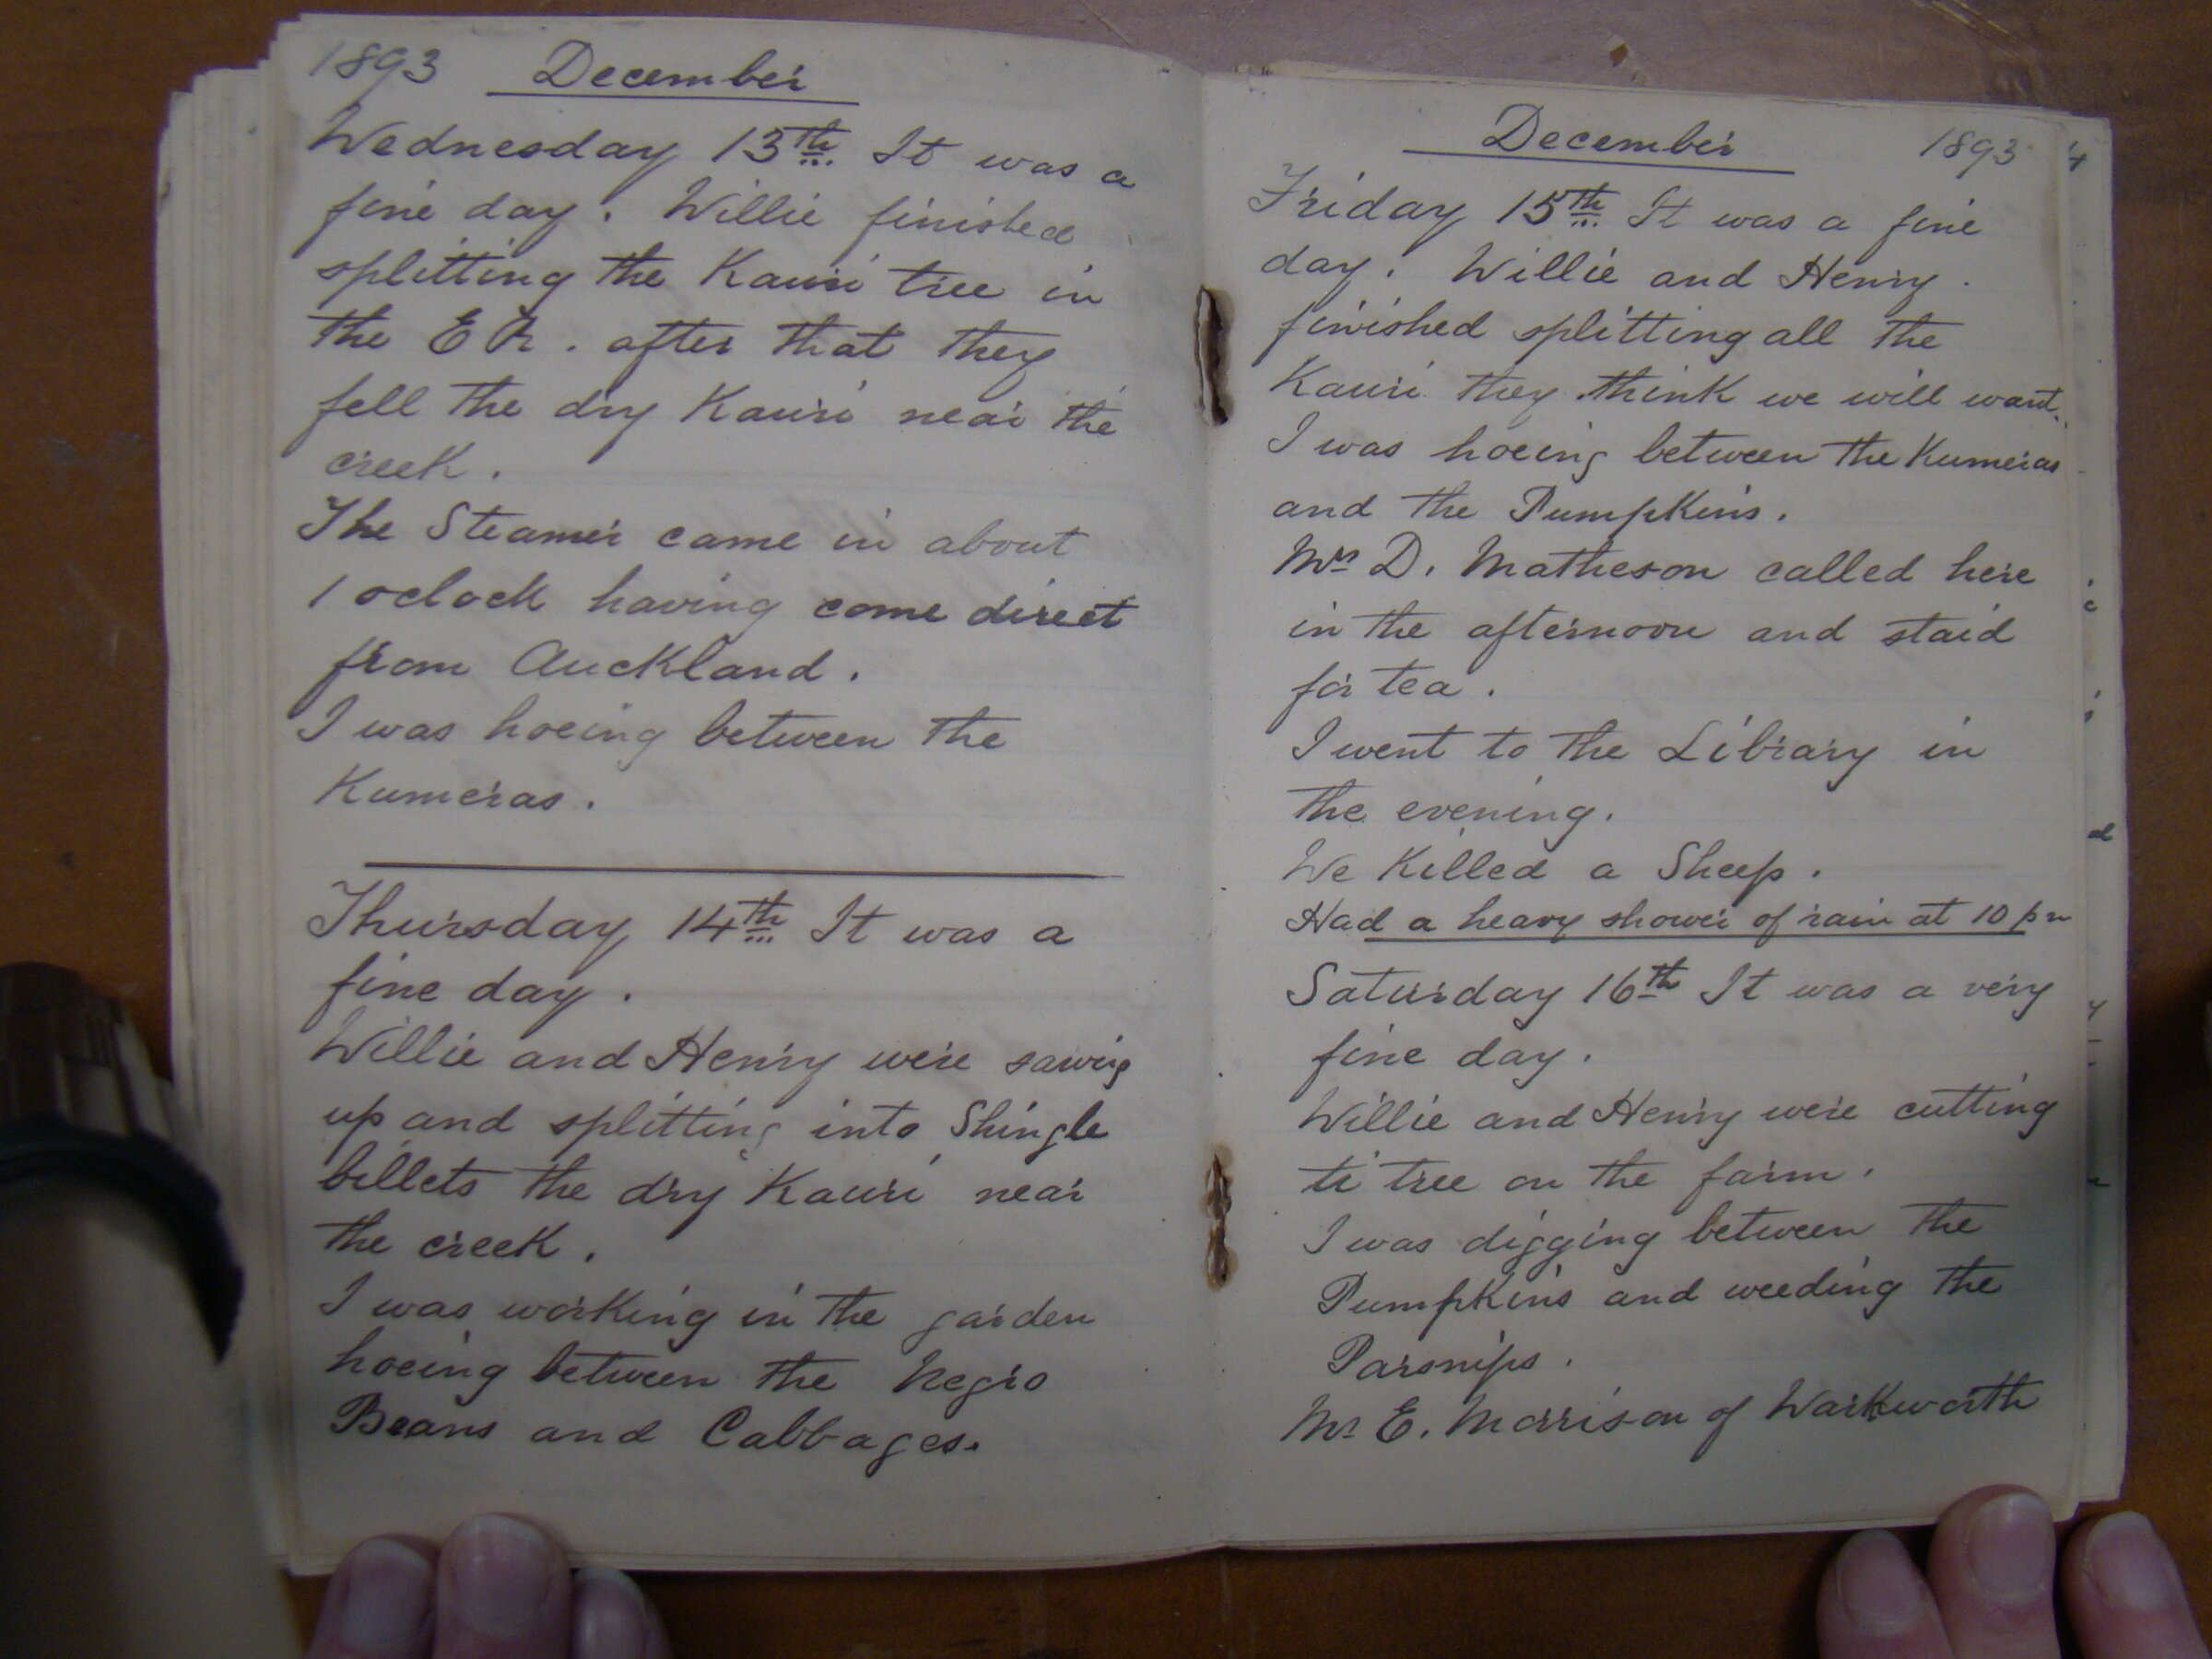 1893 December
Wednesday 13th It was a
fine day. Willie finished
splitting the Kauri tree in
the E R. after that they
fell the dry Kauri near the
creek.
The Steamer came in about
1 oclock having come direct
from Auckland.
I was hoeing between the
Kumeras.
Thursday 14th It was a
fine day.
Willie and Henry were sawing
up and splitting into Shingle
billets the dry Kauri near
the creek.
I was working in the garden
hoeing between the Negro
Beans and Cabbages.
December 1893
Friday 15th It was a fine
day. Willie and Henry
finished splitting all the
Kauri they think we will want.
I was hoeing between the Kumeras
and the Pumpkins.
Mrs D. Matheson called here
in the afternoon and staid
for tea.
I went to the Library in
the evening.
We Killed a Sheep.
Had a heavy shower of rain at 10 pm
Saturday 16th It was a very
fine day.
Willie and Henry were cutting
ti tree on the farm.
I was digging between the
Pumpkins and weeding the
Parsnips.
Mr E. Morrison of Warkworth